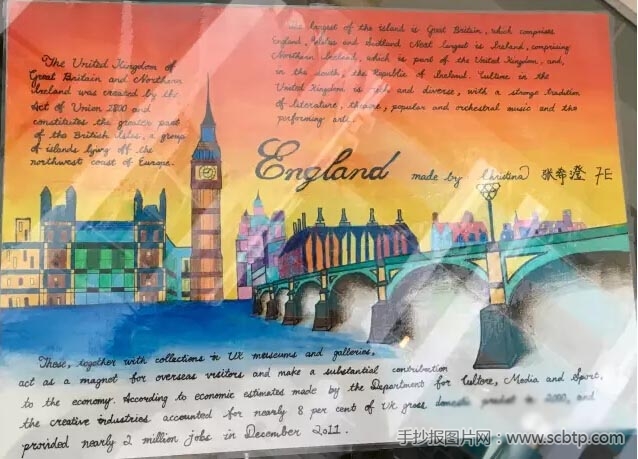 The United Kingdom of
Great Britain and Northern
Ireland was created by the
Act of Union 1800 and
constitutes the greater part
of the British Isles, a group
of islands lying off the
northwest coast of Europe.
The largest of the island is Great Britain, which comprises
England, Wales and Scotland Next largest is Ireland, comprising
Northern Ireland, which is part of the United Kingdom, and,
in the south, the Republic of Ireland. Culture in the
United Kingdom is rich and diverse, with a strong tradition
of literature, theatre, popular and orchestral music and the
performing arts.
England made by Christina 张希澄 7E
These, together with collections in UK museums and galleries,
act as a magnet for overseas visitors and make a substantial contribution
to the economy. According to economic estimates made by the Department for Culture, Media and Sport,
the creative industries accounted for nearly 8 per cent of UK gross domestic product in 2000, and
provided nearly 2 million jobs in December 2011.
手抄报图片网:www.scbtp.com